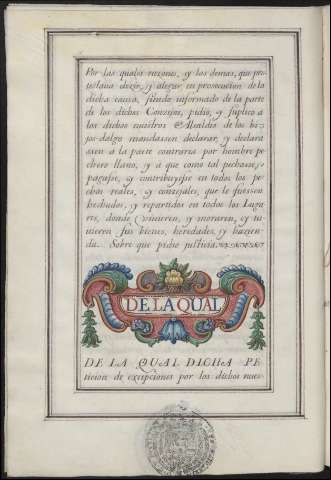 Por las quales razones, y los demas, que pro
testaua dezir, y alegar en prosecucion de la
dicha causa, siendo informado de la parte
de los dichos Conzejos, pidio, y suplico a
los dichos nuestros Alcaldes de los hi-
jos dalgo mandassen declarar, y declara
ssen a la parte contraria por hombre pe
chero llano, y a que como tal pechasse, y
pagasse, y contribuyesse en todos los pe
chos reales, y conzejales, que le fuessen
hechados, y repartidos en todos los Luga
res, donde viuieren, y moraren, y tu
uieren sus bienes, heredades, y hazien-
da. Sobre que pidio justicia.
DE LA QUAL
DE LA QUAL DICHA PE
ticion de excepciones por los dichos nues-